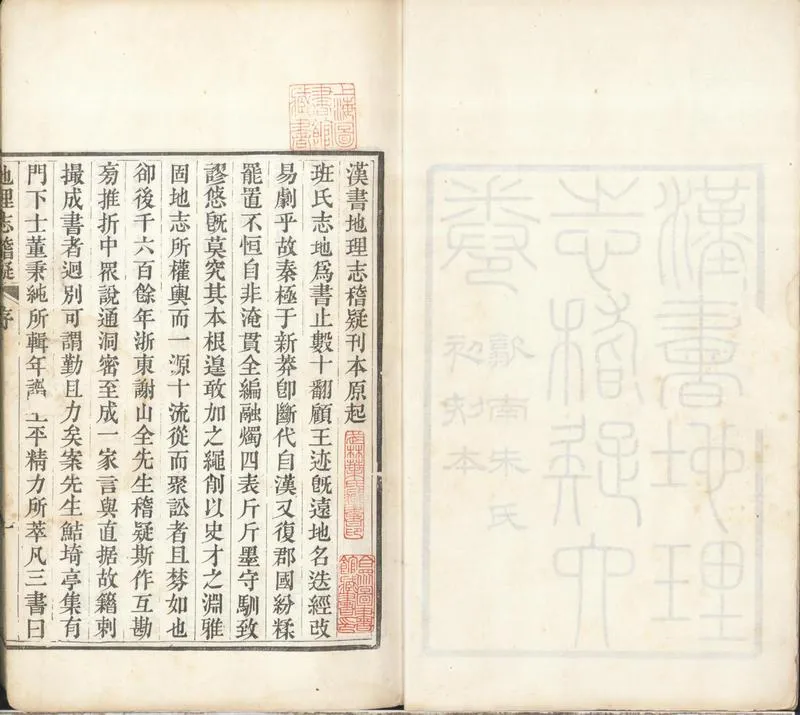 漢書地理
志稽疑六
卷
南朱氏
初刻本
上海圖
書館
藏書
漢書地理志稽疑刊本原起
武林葉氏藏書印
合眾圖書
館藏書印
班氏志地爲書止數十翻顧王迹旣遠地名迭經改
易劇乎故秦極于新莽卽斷代自漢又復郡國紛糅
罷置不恒自非淹貫全編融燭四表斤斤墨守馴致
謬悠旣莫究其本根遑敢加之繩削以史才之淵雅
固地志所權輿而一源十流從而聚訟者且棼如也
卻後千六百餘年浙東謝山全先生稽疑斯作互勘
旁推折中眾說通洞密至成一家言與直据故籍刺
撮成書者迥別可謂勤且力矣案先生鮚埼亭集有
門下士董秉純所輯年譜平精力所萃凡三書曰
地理志稽疑 序 一